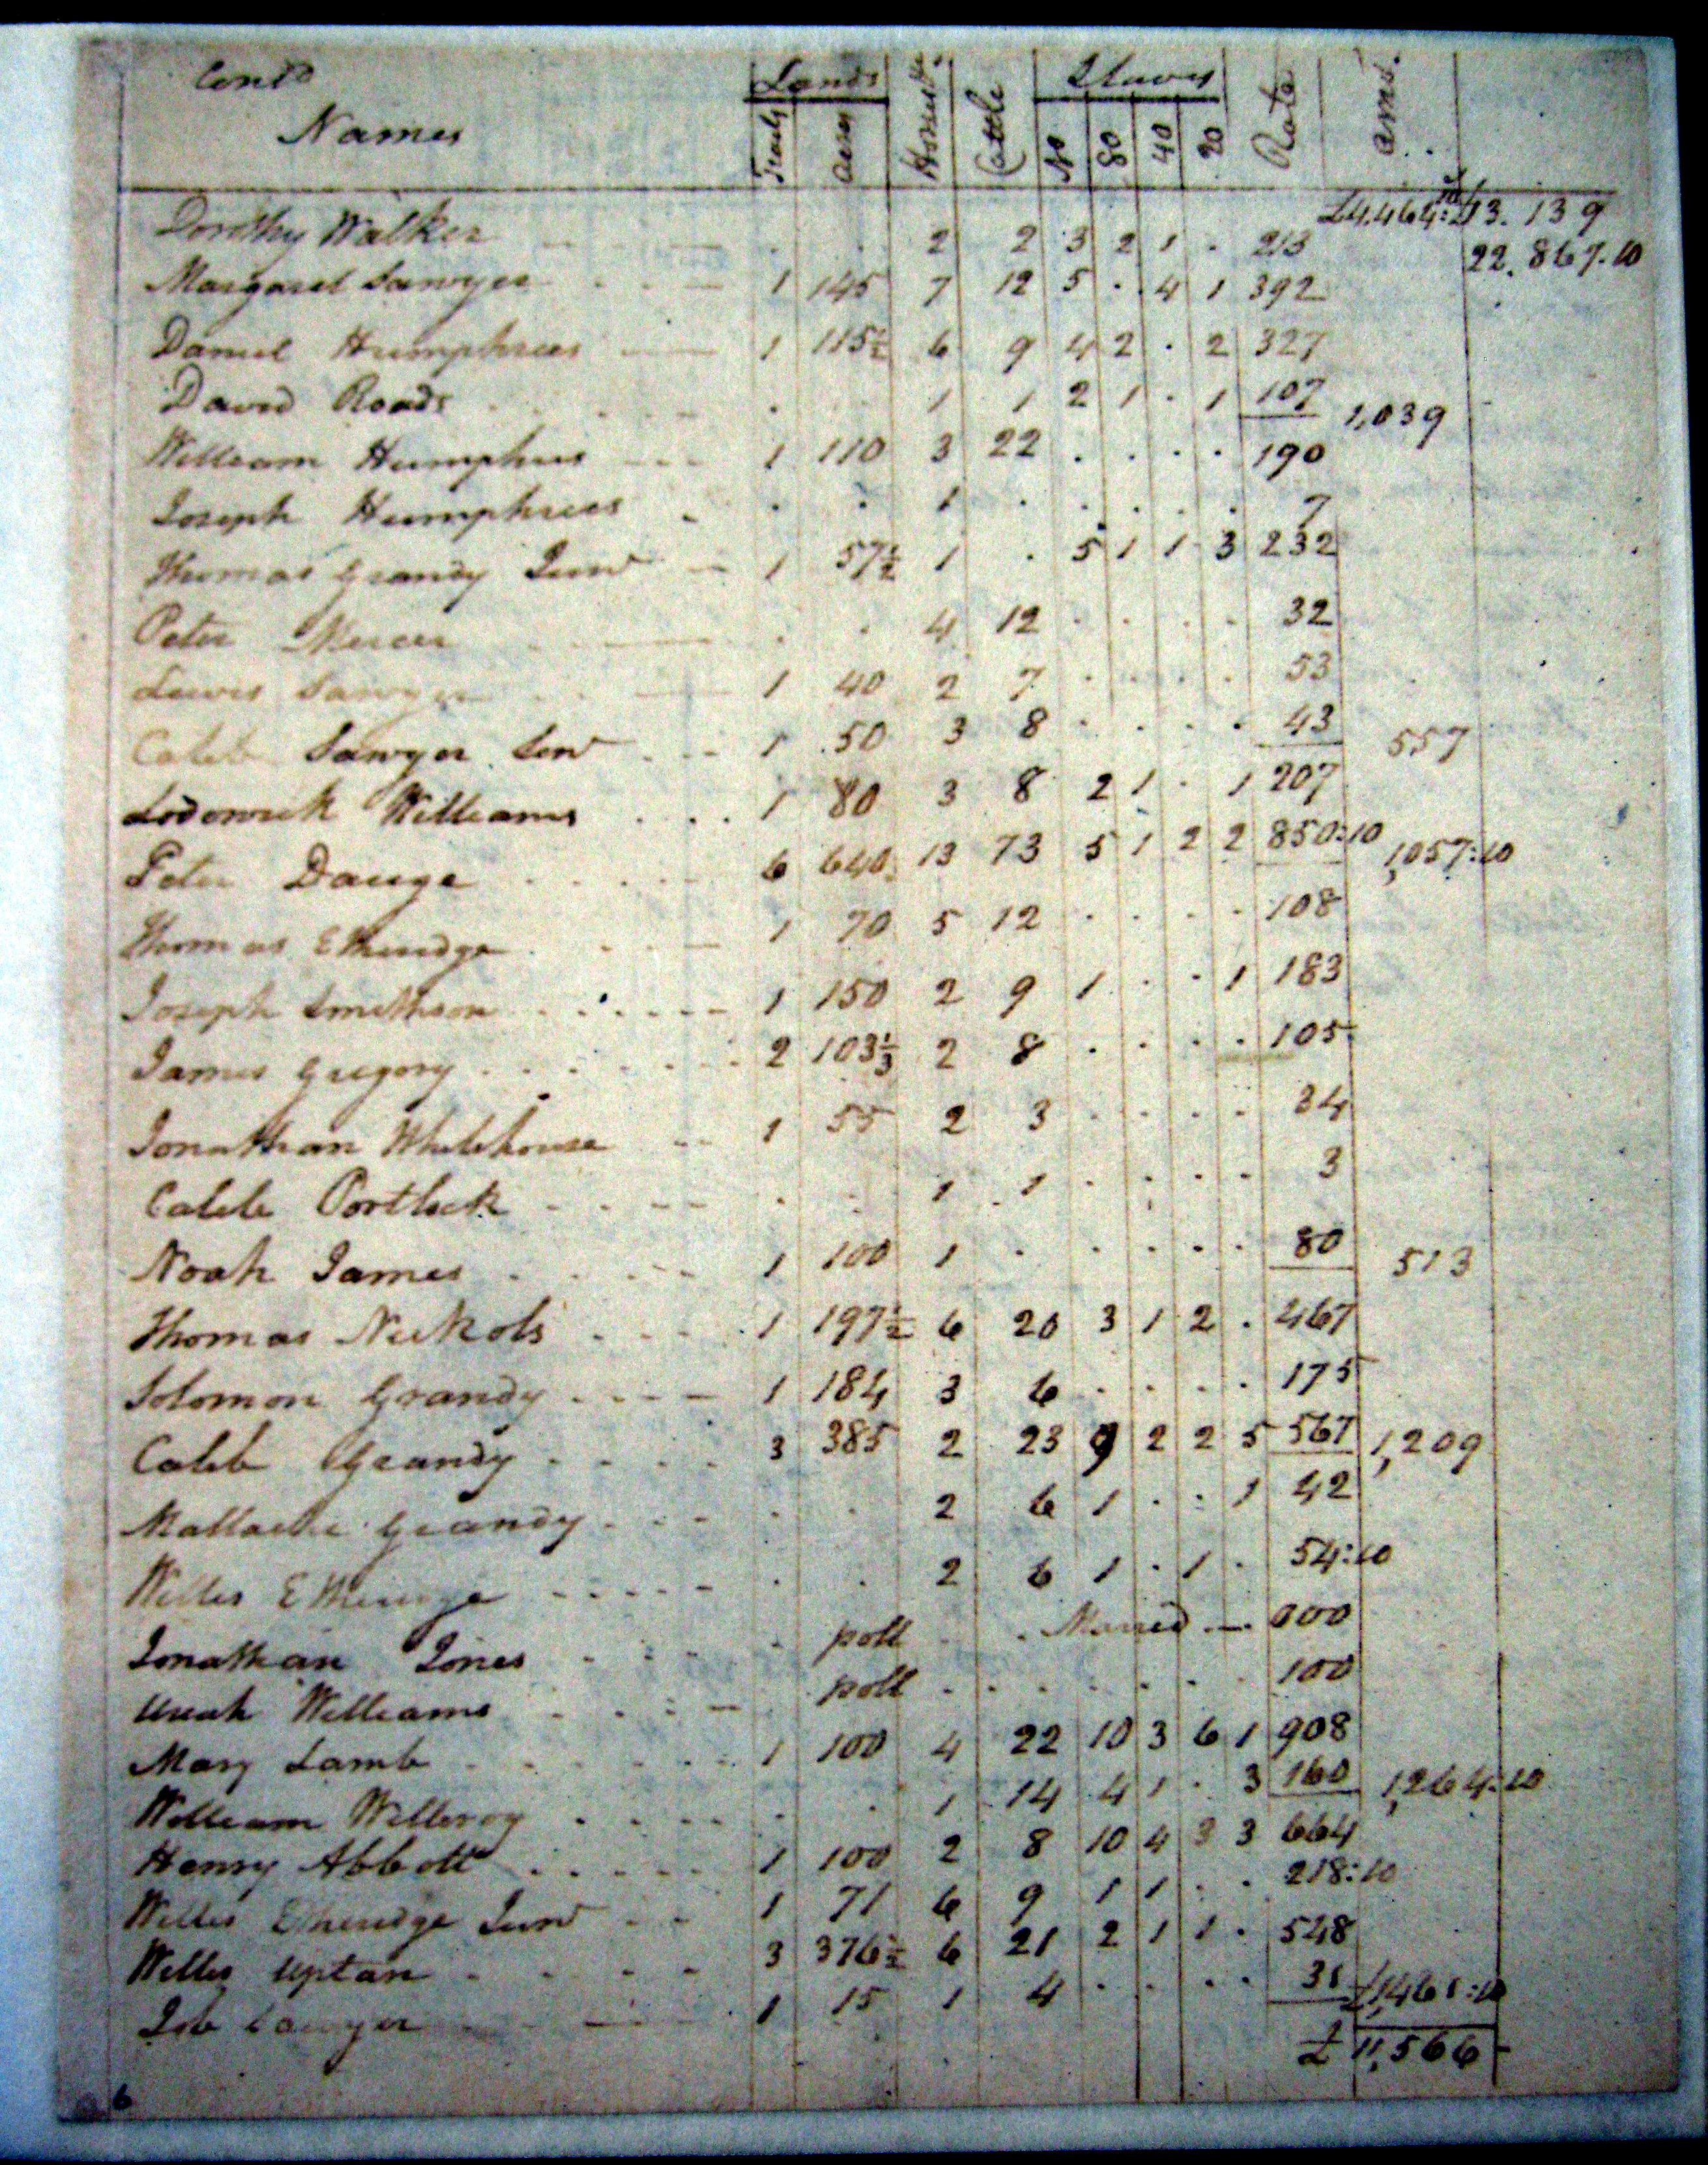 Contd
Names Lands Tracts Acres Horses &c. Cattle Slaves No 80 40 20 Rate Amt.
£4,464:10 £43.139
Dorithy Walker 2 2 3 2 1 . 213 22.867.10
Margaret Sawyer 1 145 7 12 5 . 4 1 392
Daniel Humphries 1 115½ 6 9 4 2 . 2 327
David Roads 1 1 2 1 . 1 107 1,039
William Humphries 1 110 3 22 . . . . 190
Joseph Humphries . . 1 . . . . . 7
Thomas Grandy Junr 1 57½ 1 . 5 1 1 3 232
Peter Mercer . . 4 12 . . . . 32
Lewis Sawyer 1 40 2 7 . . . . 53
Caleb Sawyer Senr 1 50 3 8 . . . . 43 557
Lodowick Williams 1 80 3 8 2 1 . 1 207
Peter Dauge 6 640 13 73 5 1 2 2 850:10 1,057:10
Thomas Etheridge 1 70 5 12 . . . . 108
Joseph Smithson 1 150 2 9 1 . . 1 183
James Gregory 2 103⅓ 2 8 . . . . 105
Jonathan Whitehouse 1 55 2 3 . . . . 34
Caleb Portlock . . 1 1 . . . . 3
Noah James 1 100 1 . . . . . 80 513
Thomas Nickols 1 197½ 6 20 3 1 2 . 467
Solomon Grandy 1 184 3 6 . . . . 175
Caleb Grandy 3 385 2 23 9 2 2 5 567 1,209
Mallachi Grandy . . 2 6 1 . . 1 42
Willis Etheridge . . 2 6 1 . 1 . 54:10
Jonathan Jones poll Married 000
Uriah Williams poll . . . . . . 100
Mary Lamb 1 100 4 22 10 3 6 1 908
William Willeroy . . 1 14 4 1 . 3 160 1,264:10
Henry Abbott 1 100 2 8 10 4 3 3 664
Willis Etheridge Junr 1 71 6 9 1 1 . . 218:10
Willis Uptan 3 376½ 6 21 2 1 1 . 548
Job Sawyer 1 15 1 4 . . . . 31 £1,461:10
£ 11,566
6